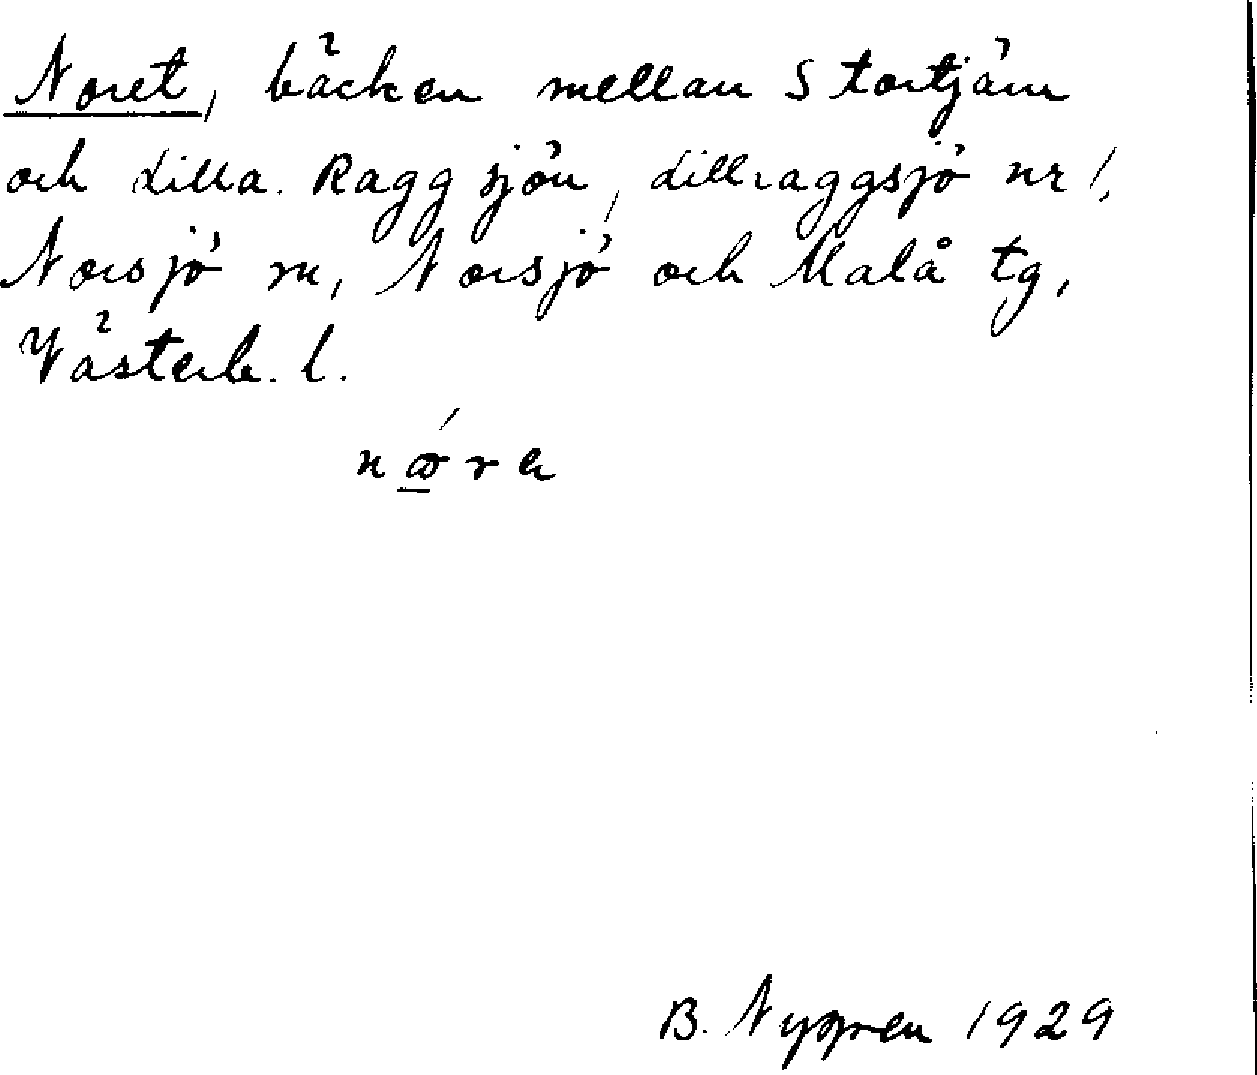 Noret, bäcken mellan Stortjärn
och Lilla. Raggsjön, Lillraggsjö nr 1,
Norsjö sn, Norsjö och Malå tg,
Västerb. l.
B. Nygren 1929